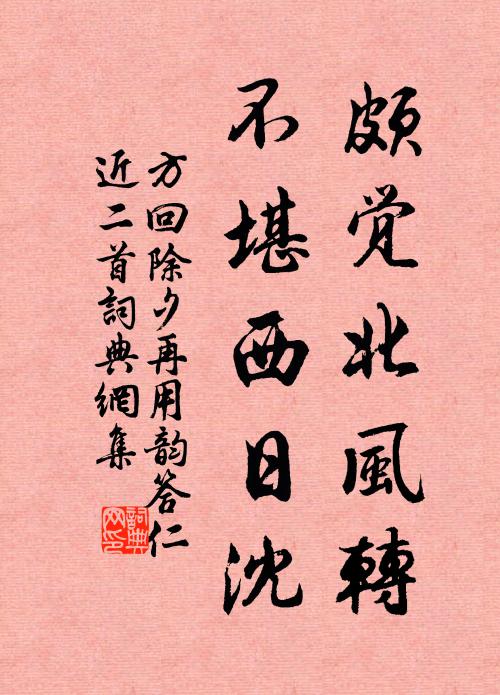 頗觉北風轉
不堪西日沈
方回除夕再用韵答仁
近二首詞典網集
詞典网印